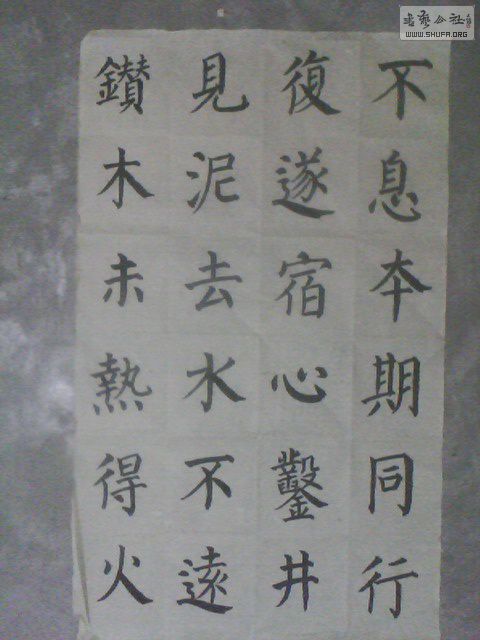 不息夲期同行
復遂宿心鑿井
見泥去水不遠
鑚木未熱得火
书艺公社
WWW.SHUFA.ORG